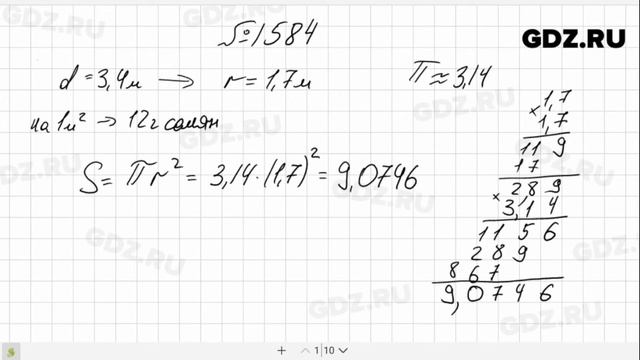 №1584
GDZ.RU
d = 3,4м → r = 1,7м
π ≈ 3,14
на 1м² → 12г семян
S = πr² = 3,14·(1,7)² = 9,0746
× 1,7
1,7
11 9
17
× 2,8 9
3,1 4
11 5 6
2 8 9
8 6 7
9,0 7 4 6
1|10